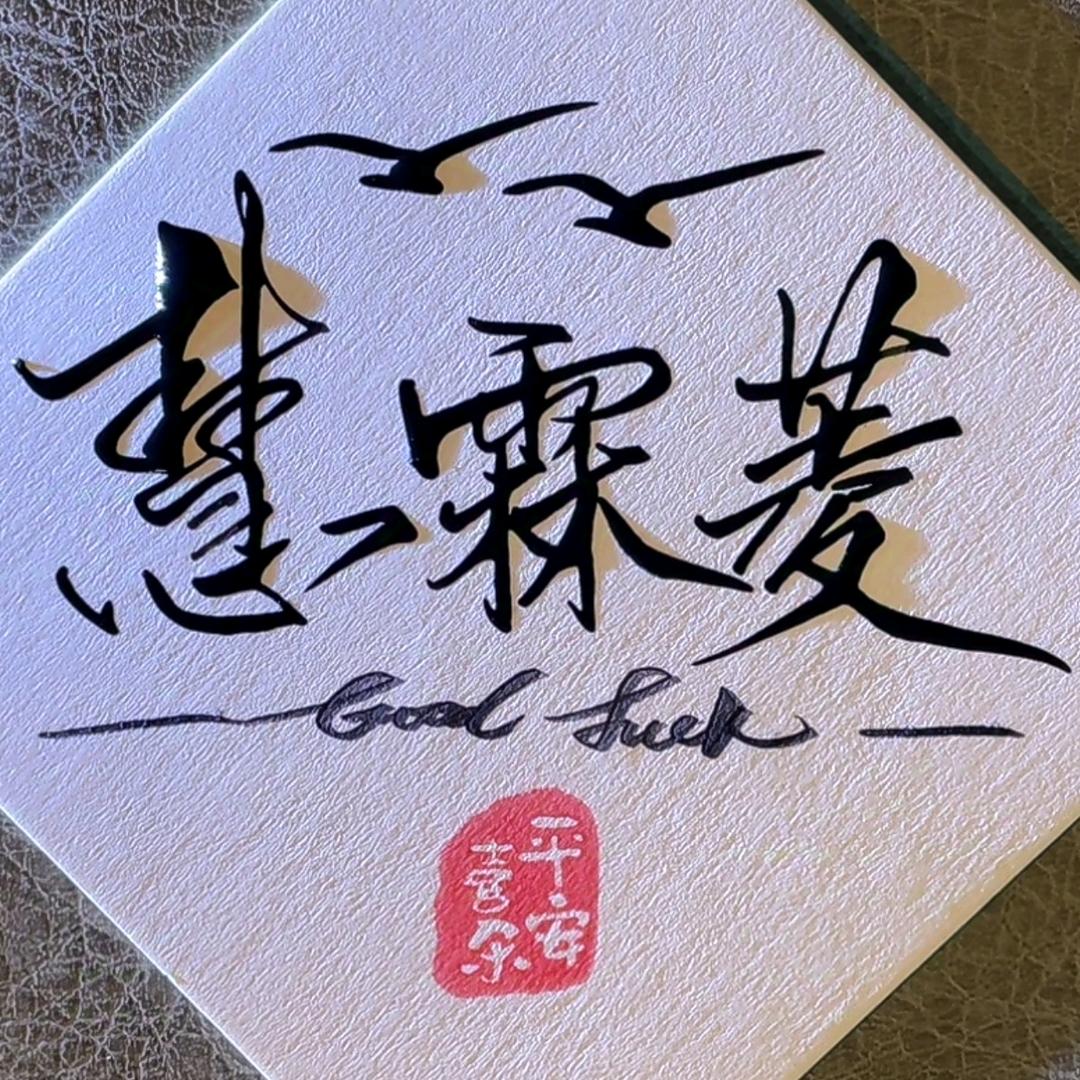 慧霖菱
Good Luck
平安
喜乐